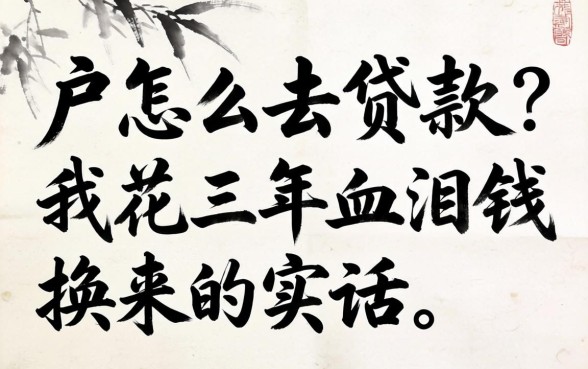 户怎么去贷款？
我花三年血泪钱
换来的实话。